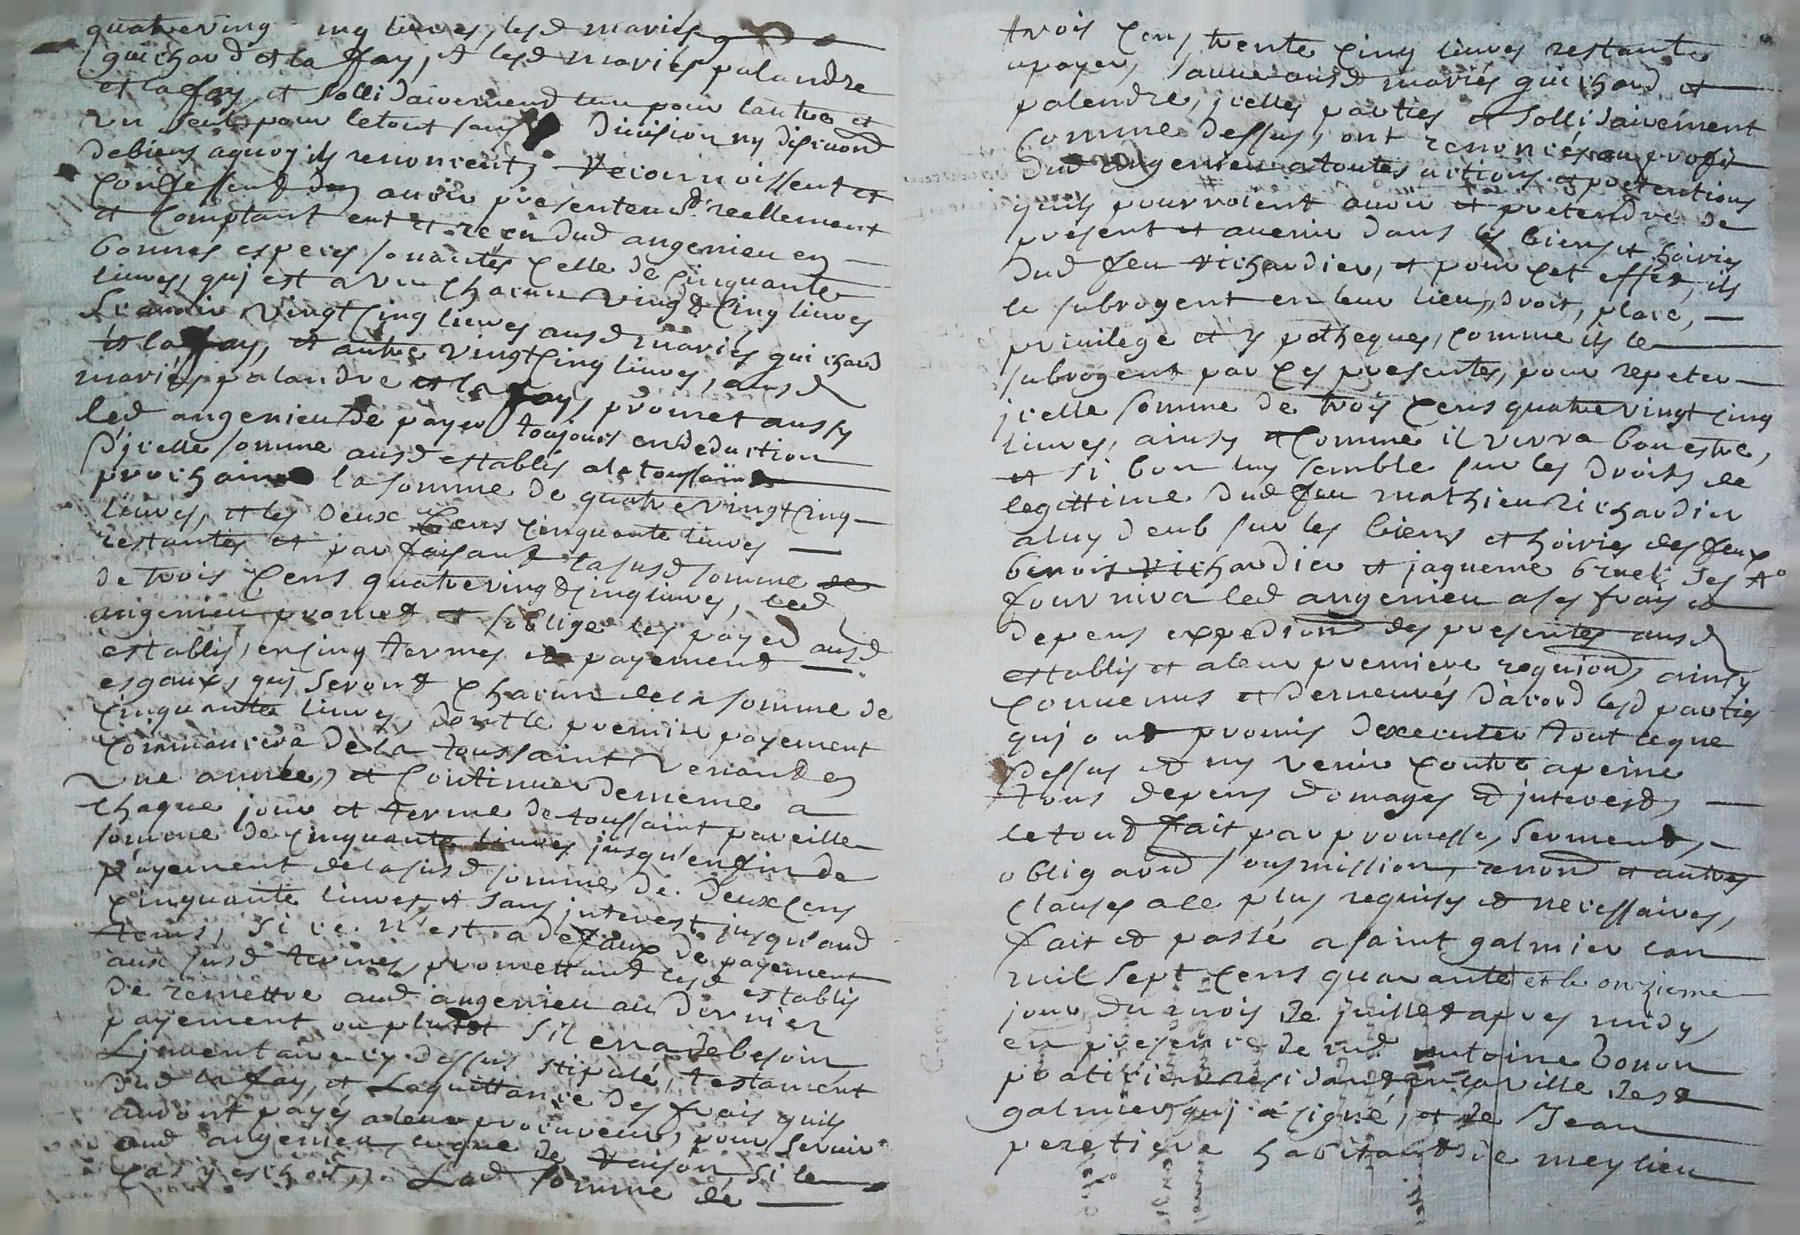 quatreving inq livres, lesd mariés
guichard et la fay, & lesd mariés palandre
et la fay, et sollidairement lun pour lautre et
un seul pour le tout sans division ny discuond
de biens aquoy ils renoncent, reconnoissent et
confessent den avoir presentemd reellement
et comptant eut et recu dud angenieu en
bonnes especes sonantes celle de cinquante
livres, qui est a un chacun vingt cinq livres
scavoir vingt cinq livres ausd mariés guichard
et la fay, et autre vingt cinq livres, ausd
mariés palandre et la fay, promet aussy
led angenieu de payer toujours en deduction
dicelle somme ausd establis a la toussaint
prochaine la somme de quatre vingt cinq
livres, et les deux cens cinquante livres
restantes et parfaisant lasusd somme de
de trois cens quatreving cinq livres, led
angenieu promet et soblige les payer ausd
establis, en cinq termes et payement
esgaux, qui seront chacun de la somme de
cinquante livres, dont le premier payement
commancera de la toussaint venant en
une année, et continuer de meme a
chaque jour et terme de toussaint pareille
somme de cinquante livres jusqu'en fin de
payement de lasusd somme de deux cens
cinquante livres, et sans interest jusqu'aud
tems, si ce n'est a defaux de payement
aux susd termes, promettand lesd establis
de remettre aud angenieu au dernier
payement ou plutot s'il en a de besoin
L'inventaire cy dessus stipulé, testament
dud la fay, et la quittance des frais quils
auront payés a leur procureur, pour servir
aud angenieu en que de raison, si le
cas y eschoit, Lad somme de
trois cens trente cinq livres restante
apayer, sauve ausd mariés guichard et
palendre, icelles parties et sollidairement
comme dessus, ont renoncés au profit
dud angenieu a toutes actions et pretentions
quils pourroient avoir et pretendre de
present et avenir dans les biens et hoiries
dud feu richardier, et pour cet effet, ils
le subrogent en leur lieu, droit, place,
privilege et ypotheques, comme ils le
subrogent par ces presentes, pour repeter
icelle somme de trois cens quatre vingt cinq
livres, ainsy et comme il verra bon estre,
et si bon luy semble sur les droits de
legittime dud feu mathieu richardier
a luy deub sur les biens et hoiries des feux
benoit richardier et jaqueme bruel, ses
fournira led angenieu a ses frais et
depens expedion des presentes ausd
establis et a leur premiere requion, ainsy
convenus et demeurés d'acord lesd parties
qui ont promis dexecuter tout ce que
dessus et ny venir contre apeine
tous depens domages et interests,
le tout fait par promesse, serment,
obligaond sousmission, renond et autres
clauses a ce plus requises et necessaires,
fait et passé a saint galmier lan
mil sept cens quarante et le onzieme
jour du mois de juillet apres midy
en presence de md antoine bonon
praticien residant en la ville de st
galmier, qui a signé, et de Jean
peretiere habitant de meylieu